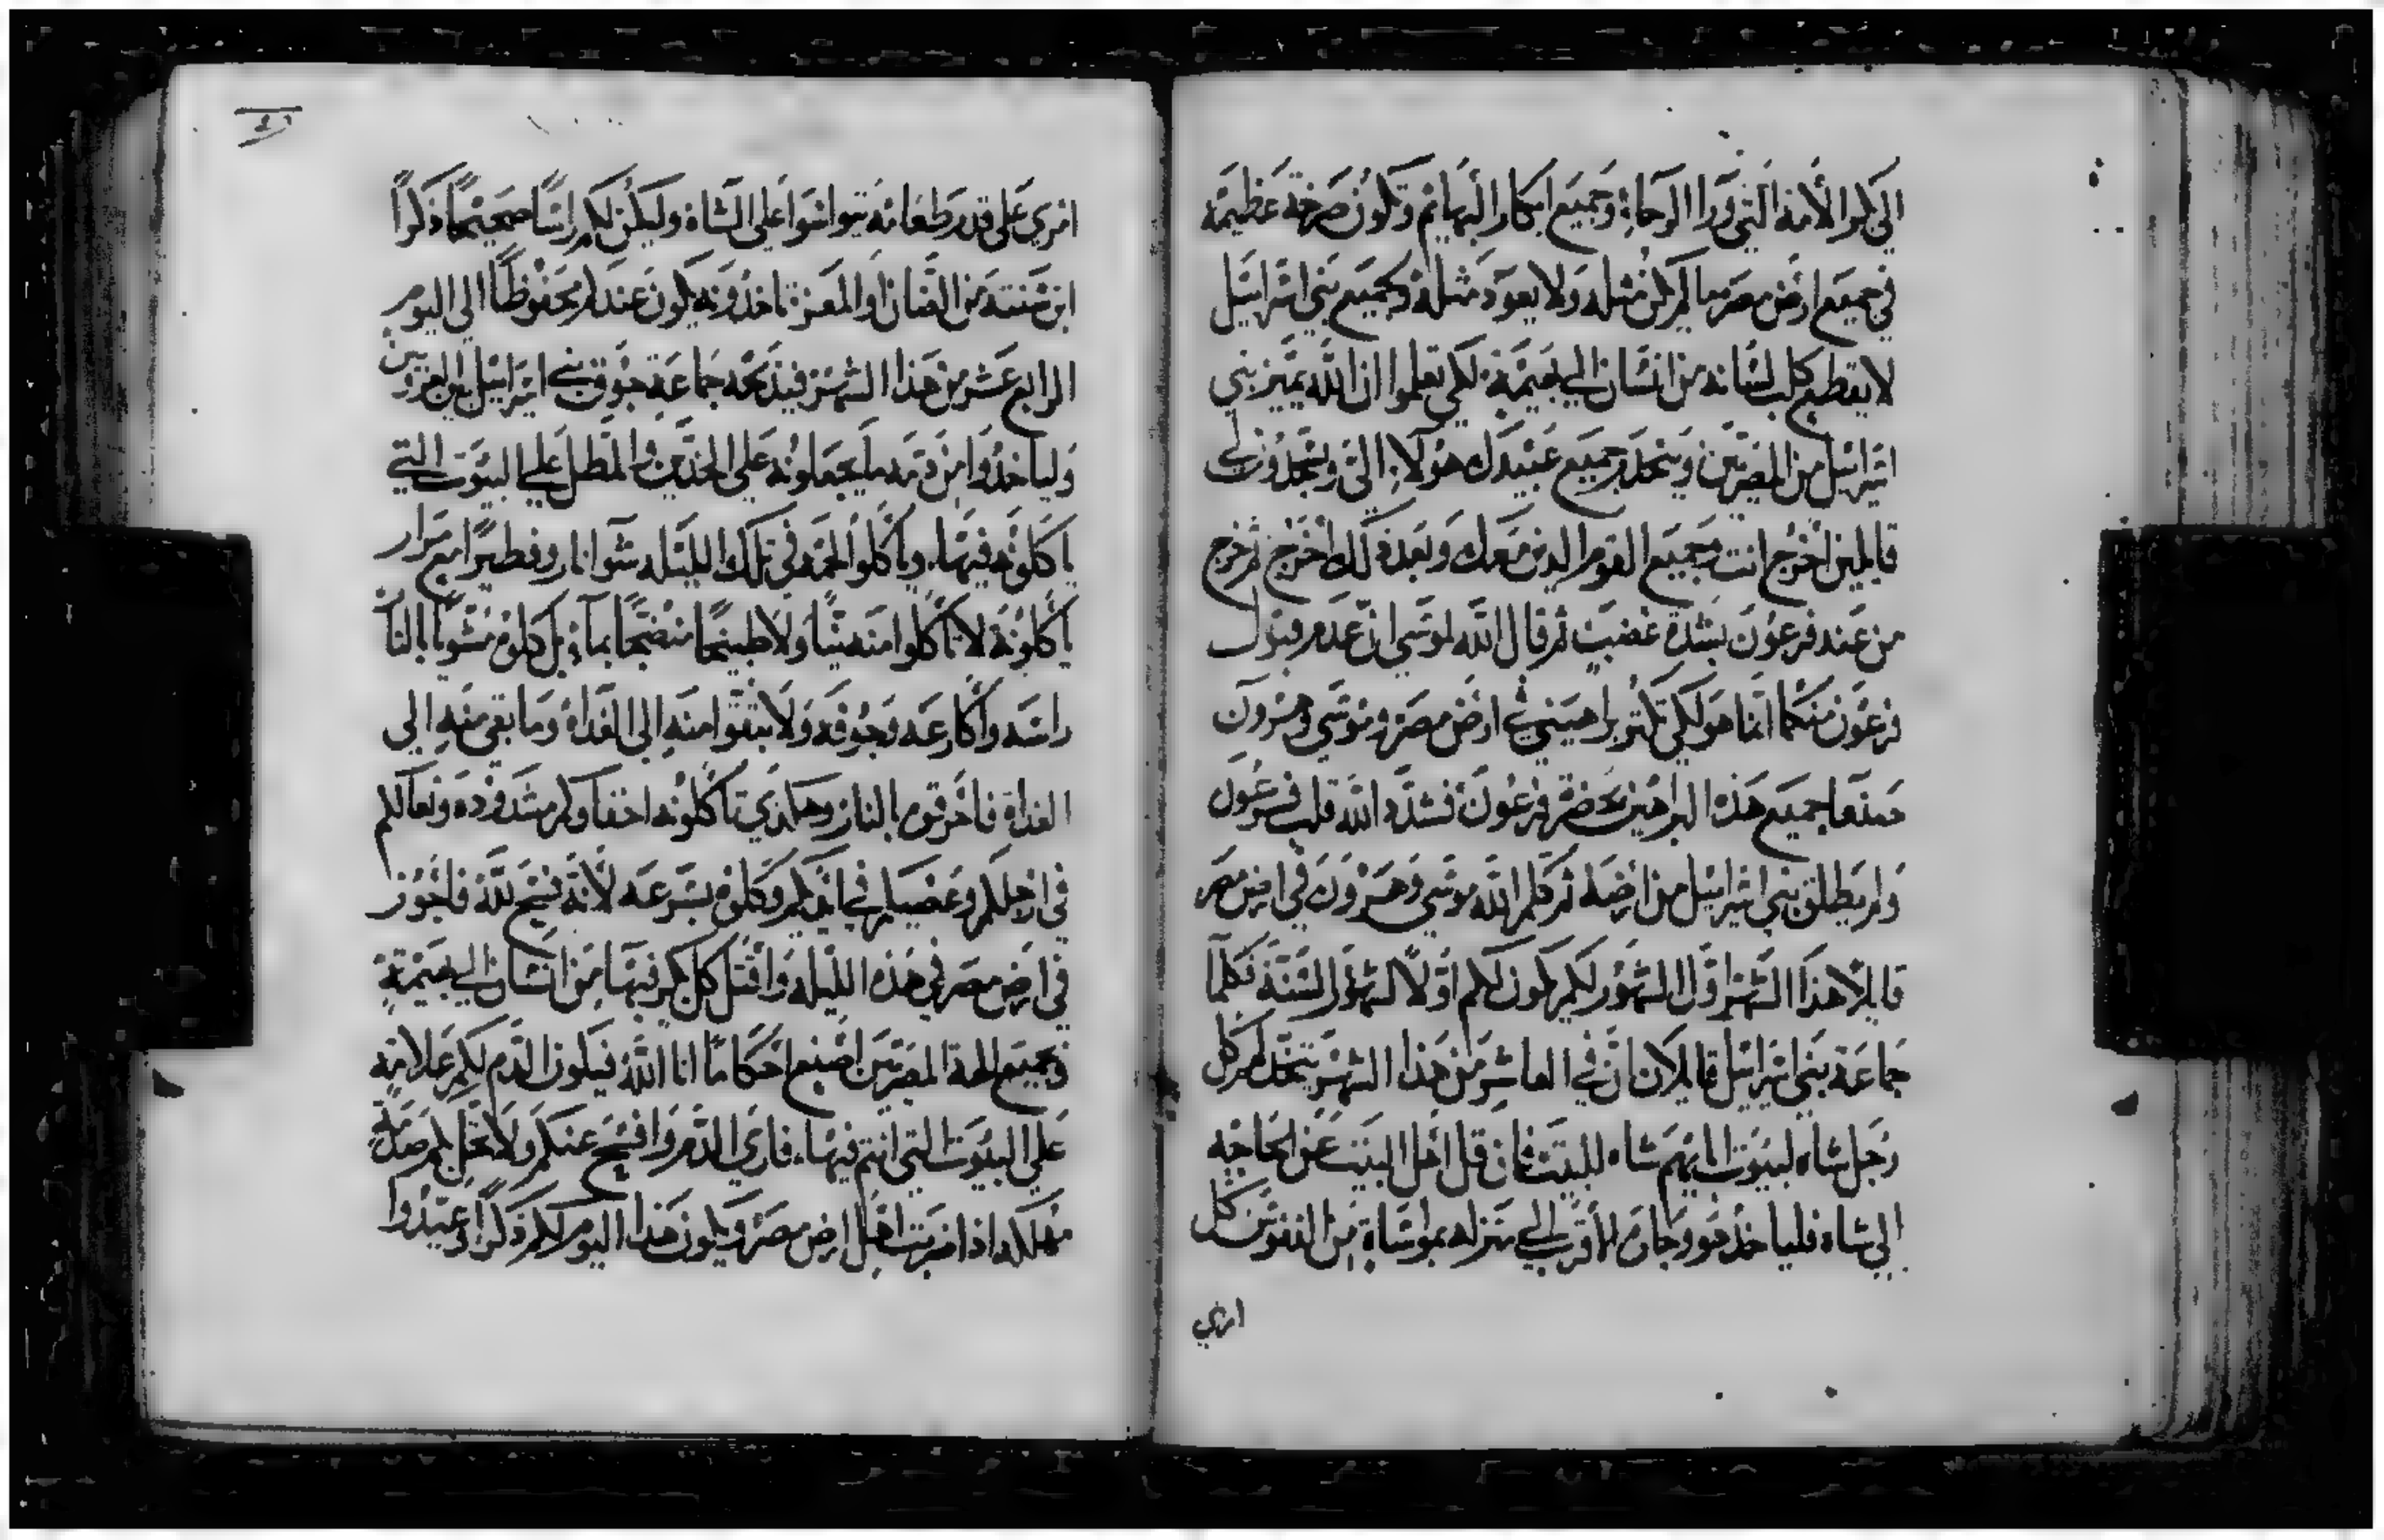 الى بكر الأمة التي ورا الرحاء وجميع ابكار البهايم وتكون صرخة عظيمه
في جميع ارض مصر ما لم يكن مثله ولا يعود مثله وجميع بني اسرائيل
لا يقطع كلب لسانه من انسان الي بهيمة لكي تعلموا ان الله يميز بني
اسرائيل من المصريين وينحدر جميع عبيدك هولاء الىّ ويسجدون لي
قايلين اخرج انت وجميع القوم الدين معك وبعد ذلك اخرج ثم خرج
من عند فرعون بشدة غضب ثم قال الله لموسي ان عدم قبول
فرعون منكما انما هو لكي تكثر براهيني في ارض مصر وموسي وهرون
صنعا جميع هذه البراهين بحضرة فرعون فشدد الله قلب فرعون
ولم يطلق بني اسرائيل من ارضه ثم كلم الله موسي وهرون في ارض مصر
قايلا هذا الشهر اول الشهور لكم يكون لكم اولا لشهور السنة فكلما
جماعة بني اسرائيل قايلان ان في العاشر من هذا الشهر يتخد لهم كل
رجل شاه لبيوت ابايهم شاه للبيت فان قل اهل البيت عن الحاجه
الي شاه فلياخد هو وجاره الأقرب الي منزله بمواساة من النفوس كل
امري
امري علي قدر طعامه تتواسوا على الشاة وليكن لكم راسًا صحيحًا ذكرًا
ابن سنته من الضان او المعز تاخدونه يكون عندكم محفوظًا الى اليوم
الرابع عشر من هذا الشهر فيذبحه جماعة جوق بني اسرائيل بين الغروبين
ولياخدوا من دمه ما يجعلونه علي الخدين والمطل علي البيوت التي
ياكلونه فيها، وياكلوا لحمه في تلك الليله شوا نار وفطيرًا مع مرار
ياكلونه لا تاكلوا منه نيًا ولا طبيخًا منضجًا بماء بل كلوه مشويًا بالنار
راسه واكارعه وجوفه ولا تبقوا منه الى الغداة وما بقي منه الي
الغداة فاحرقوه بالنار وهكذي تاكلونه احقاوكم مشدوده ونعالكم
في ارجلكم وعصيكم في ايديكم وكلوه بسرعه لأنه فسح لله فاجوز
في ارض مصر في هذه الليله واقتل كل بكر فيها من انسان الي بهيمة
وبجميع الهة المصريين اصنع احكامًا انا الله فيكون الدم لكم علامه
علي البيوت التي انتم فيها، فاري الدم وافسح عنكم ولا تحل بكم صدمة
مهلكه اذا ضربت اهل ارض مصر ويكون هذا اليوم لكم ذكرًا وعيدوا